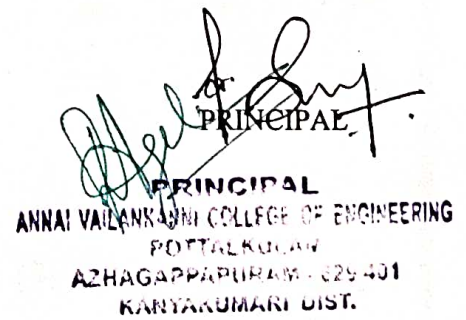 PRINCIPAL
PRINCIPAL
ANNAI VAILANKANNI COLLEGE OF ENGINEERING
POTTALKULAM
AZHAGAPPAPURAM - 629 401
KANYAKUMARI DIST.